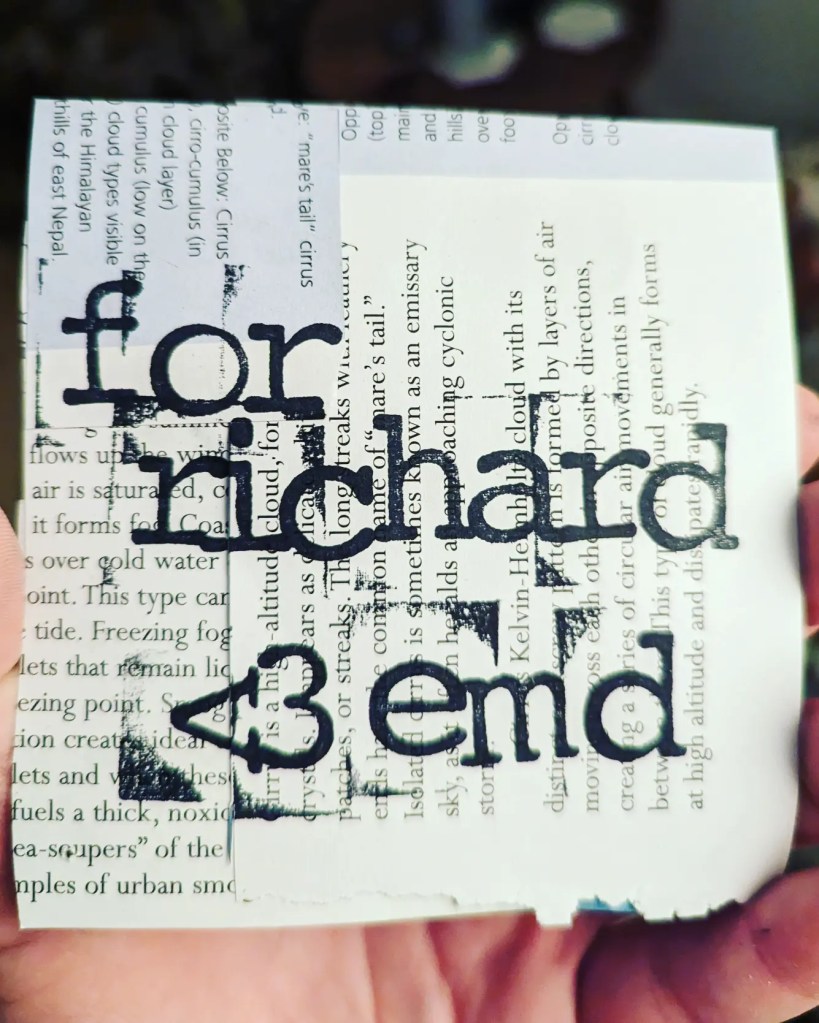 ve: “mare’s tail” cirrus
d.
osite Below: Cirrus
, cirro-cumulus (in
cloud layer)
cumulus (low on the
) cloud types visible
the Himalayan
hills of east Nepal.
Opp
(top
main
and
hills
over
foo
Op
cirr
clo
for
richard
<3 emd
flows up the wind
air is saturated, c
it forms fog. Coa
s over cold water
oint. This type can
tide. Freezing fog
lets that remain liq
ezing point.
tion creates ideal
lets and when these
fuels a thick, noxio
ea-soupers” of the
mples of urban smo
Cirrus is a high-altitude cloud, for
crystals. It appears as delicate
patches, or streaks. The long streaks with feathery
ends have the common name of “mare’s tail.”
Isolated cirrus is sometimes known as an emissary
sky, as it often heralds an approaching cyclonic
storm.
Kelvin-Helmholtz cloud with its
distinct pattern is formed by layers of air
moving across each other in opposite directions,
creating a series of circular air movements in
between. This type of cloud generally forms
at high altitude and dissipates rapidly.